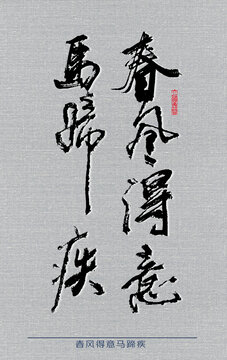 春风得意
马蹄疾
春风得意马蹄疾